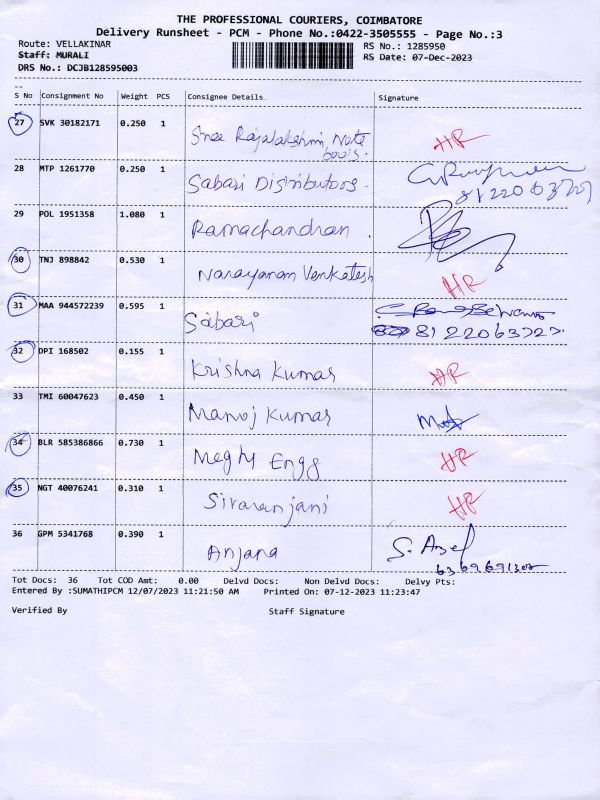 THE PROFESSIONAL COURIERS, COIMBATORE
Delivery Runsheet - PCM - Phone No.:0422-3505555 - Page No.:3
Route: VELLAKINAR RS No.: 1285950
Staff: MURALI RS Date: 07-Dec-2023
DRS No.: DCJB128595003
S No Consignment No Weight PCS Consignee Details. Signature
27 SVK 30182171 0.250 1 Sree Rajalakshmi Note HR
books.
28 MTP 1261770 0.250 1 Sabari Distributors.
29 POL 1951358 1.080 1 Ramachandran.
30 TNJ 898842 0.530 1 Narayanam Venkatesh HR
31 MAA 944572239 0.595 1 Sabari
8122063727.
32 DPI 168502 0.155 1 Krishna Kumar HR
33 TMI 60047623 0.450 1 Manoj Kumar
34 BLR 585386866 0.730 1 Meghy Engg HR
35 NGT 40076241 0.310 1 Sivaranjani HR
36 GPM 5341768 0.390 1 Anjana
Tot Docs: 36 Tot COD Amt: 0.00 Delvd Docs: Non Delvd Docs: Delvy Pts:
Entered By :SUMATHIPCM 12/07/2023 11:21:50 AM Printed On: 07-12-2023 11:23:47
Verified By Staff Signature